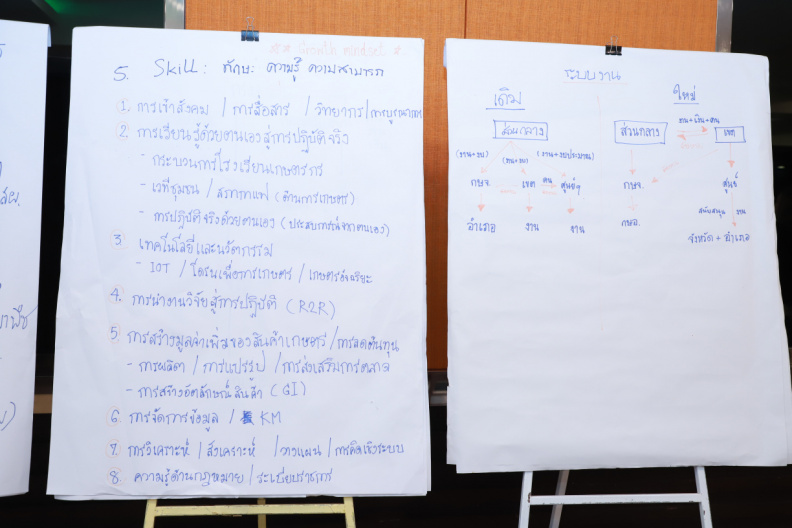 สผ.
** Growth mindset *
5. Skill : ทักษะ ความรู้ ความสามารถ
1. การเข้าสังคม / การสื่อสาร / วิทยากร/การบูรณาการ
2. การเรียนรู้ด้วยตนเองสู่การปฏิบัติจริง
- กระบวนการโรงเรียนเกษตรกร
- เวทีชุมชน / สภากาแฟ (ด้านการเกษตร)
- การปฏิบัติจริงด้วยตนเอง (ประสบการณ์จากตนเอง)
3. เทคโนโลยีและนวัตกรรม
- IOT / โดรนเพื่อการเกษตร / เกษตรอัจฉริยะ
4. การนำงานวิจัยสู่การปฏิบัติ (R2R)
5. การสร้างมูลค่าเพิ่มของสินค้าเกษตร /การลดต้นทุน
- การผลิต / การแปรรูป / การส่งเสริมการตลาด
- การสร้างอัตลักษณ์สินค้า (GI)
6. การจัดการข้อมูล / KM
7. การวิเคราะห์ / สังเคราะห์ / วางแผน / การคิดเชิงระบบ
8. ความรู้ด้านกฎหมาย / ระเบียบราชการ
ระบบงาน
เดิม ใหม่
ส่วนกลาง ส่วนกลาง งาน+เงิน+คน เขต
(งาน+งบ) (งาน+งบ) (งาน+งบประมาณ)
กษจ. เขต คน ศูนย์ฯ กษจ. ศูนย์
อำเภอ งาน งาน กษอ. สนับสนุน งาน
จังหวัด + อำเภอ